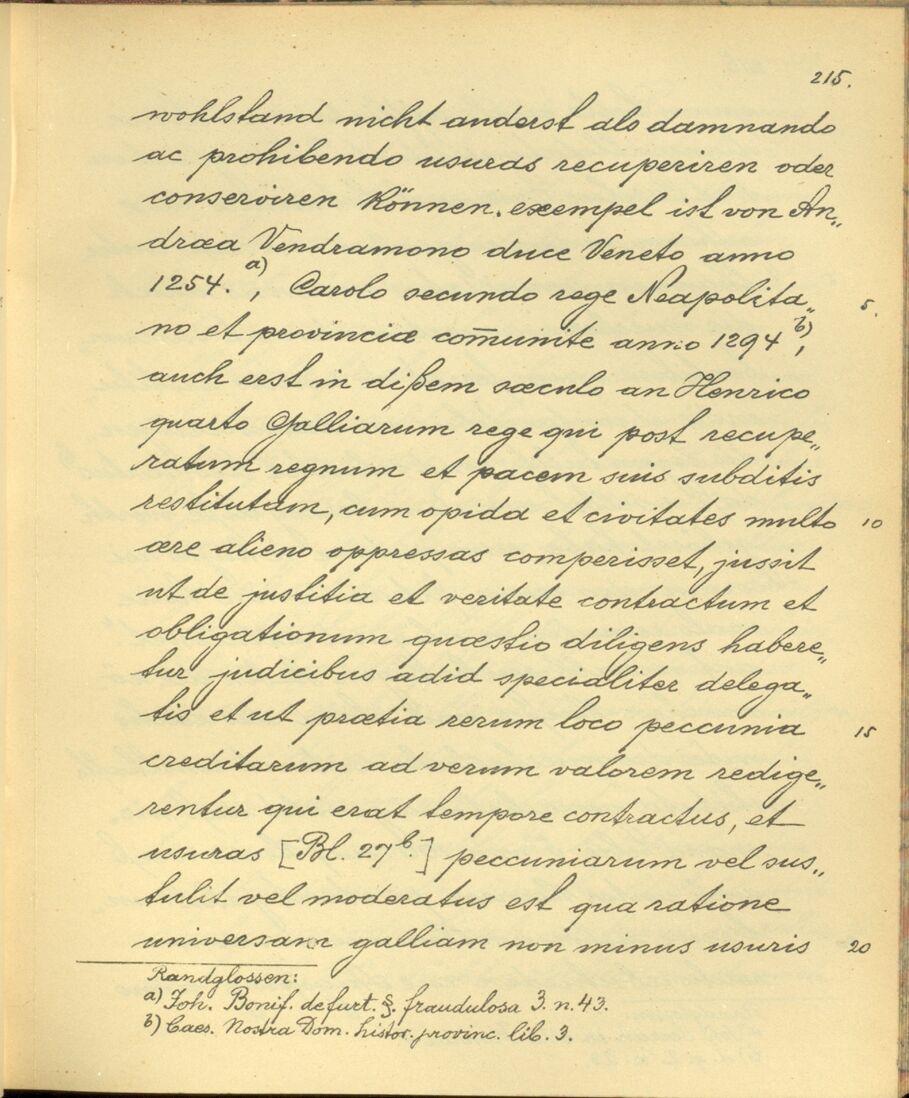 215.
wohlstand nicht anderst als damnando
ac prohibendo usuras recuperiren oder
conserviren können. exempel ist von An„
dræa Vendramono duce Veneto anno
1254. a), Carolo secundo rege Neapolita„ 5.
no et provinciæ com̄unite anno 1294 b),
auch erst in dißem sæculo an Henrico
quarto Galliarum rege qui post recupe„
ratum regnum et pacem suis subditis
restitutam, cum opida et civitates multo 10
ære alieno oppressas comperisset, jussit
ut de justitia et veritate contractum et
obligationum quæstio diligens habere„
tur judicibus ad id specialiter delega„
tis et ut prætia rerum loco peccunia 15
creditarum ad verum valorem redige„
rentur qui erat tempore contractus, et
usuras [Bl. 27b.] peccuniarum vel sus„
tulit vel moderatus est qua ratione
universam galliam non minus usuris 20
Randglossen:
a) Joh. Bonif. de furt. §. fraudulosa 3. n. 43.
b) Caes. Nostra Dom. histor. provinc. lib. 3.